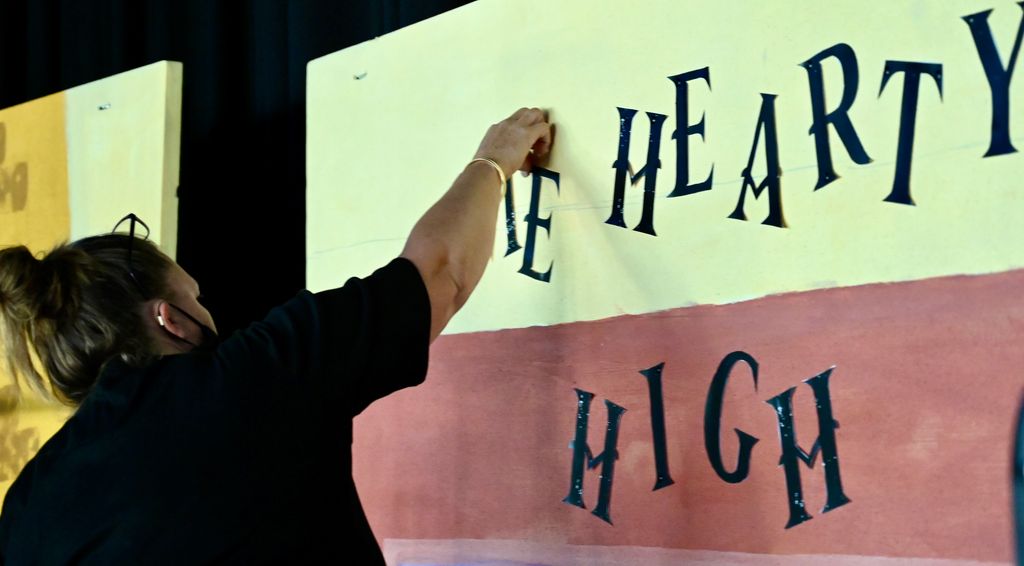 HEARTY
HIGH